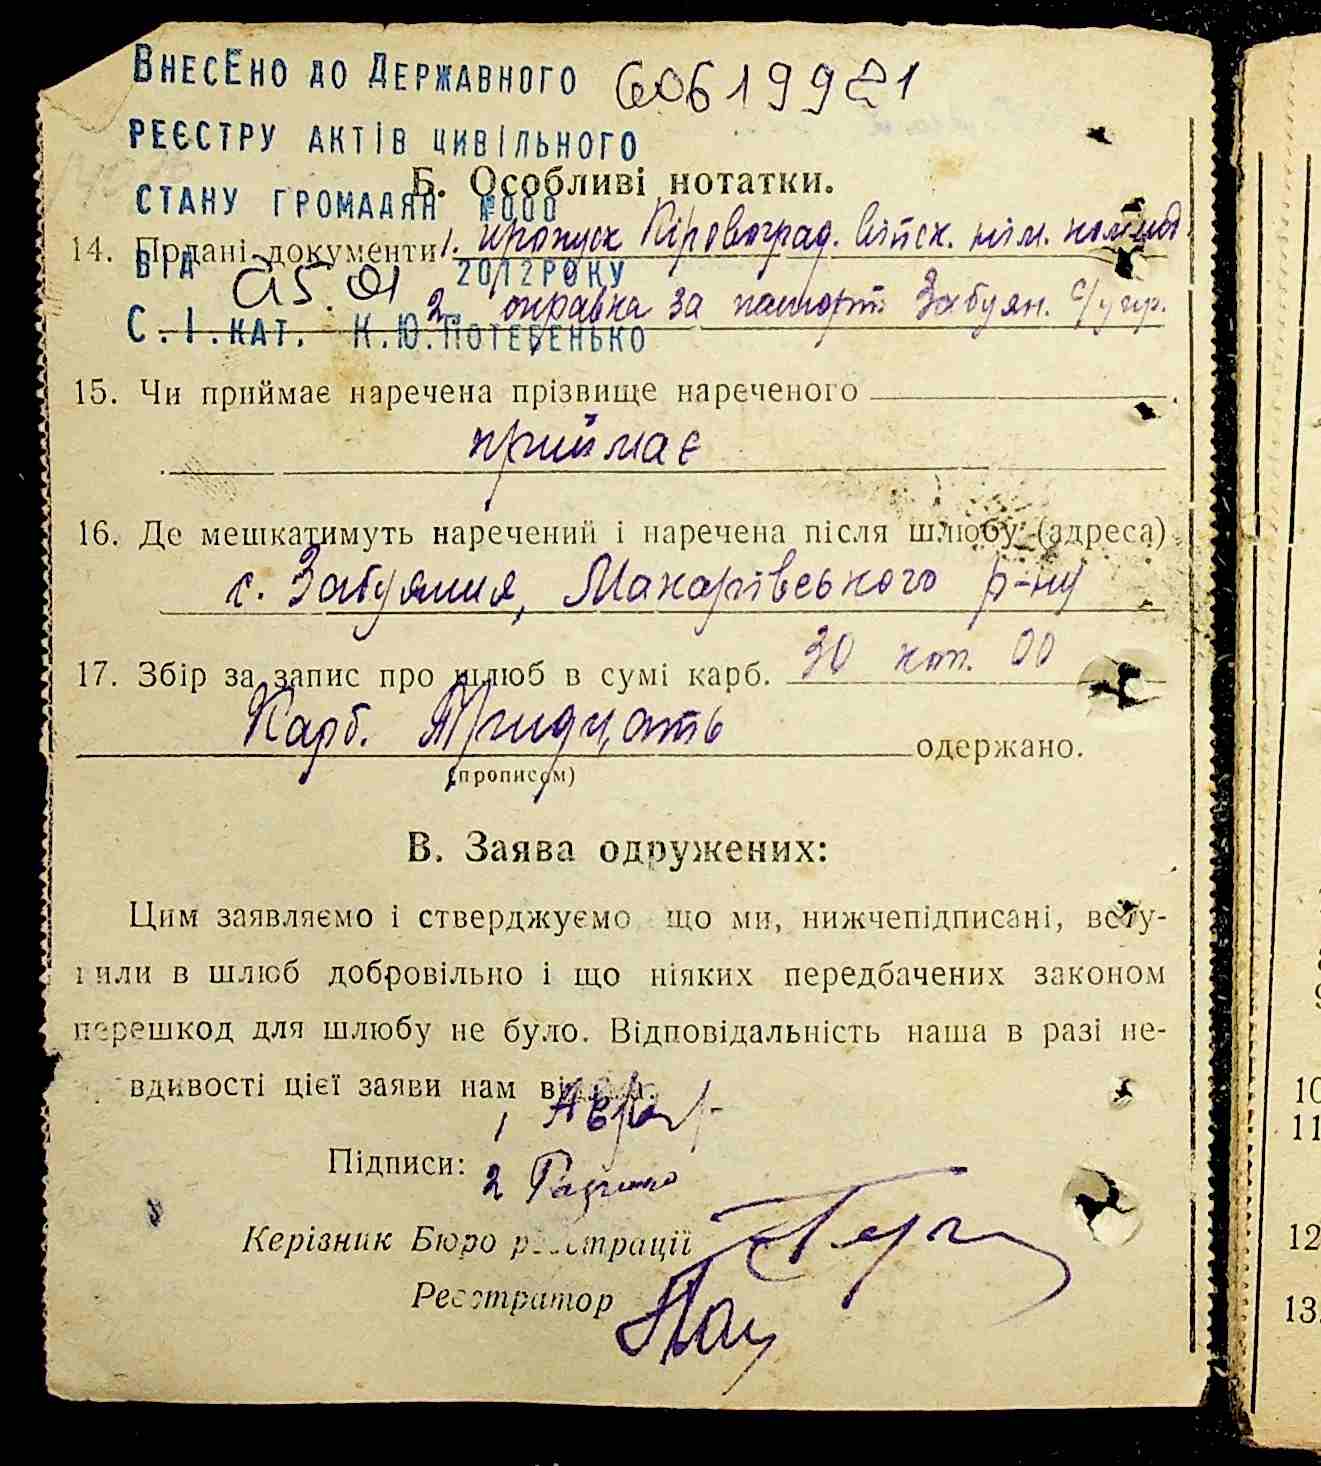 ВНЕСЕНО ДО ДЕРЖАВНОГО 60619921
РЕЄСТРУ АКТІВ ЦИВІЛЬНОГО
СТАНУ ГРОМАДЯН №000
Б. Особливі нотатки.
14. Подані документи 1. пропуск Кіровоград. війск. нім. коменд.
ВІД 25.01 2012 РОКУ
2. справка за паспорт. Забуян. с/упр.
С.І.КАТ. К.Ю.ПОТЕБЕНЬКО
15. Чи приймає наречена прізвище нареченого
приймає
16. Де мешкатимуть наречений і наречена після шлюбу (адреса)
с. Забуяння, Макарівського р-ну
17. Збір за запис про шлюб в сумі карб. 30 коп. 00
Карб. Тридцять одержано.
(прописом)
В. Заява одружених:
Цим заявляємо і стверджуємо що ми, нижчепідписані, всту-
пили в шлюб добровільно і що ніяких передбачених законом
перешкод для шлюбу не було. Відповідальність наша в разі не-
вдивості цієї заяви нам відома.
1
Підписи: 2
Керізник Бюро реєстрації
Реєстратор
10
11
12
13.